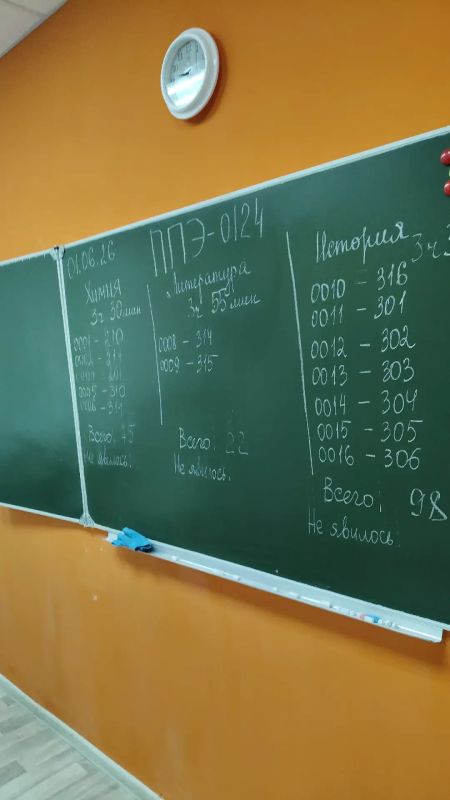 01.06.26
ППЭ-0124
Химия
3ч 30 мин
0001 - 310
Всего: 75
Не явилось:
Литература
3ч 55 мин
0008 - 314
0009 - 315
Всего: 22
Не явилось:
История
3ч 3
0010 - 316
0011 - 301
0012 - 302
0013 - 303
0014 - 304
0015 - 305
0016 - 306
Всего: 98
Не явилось: